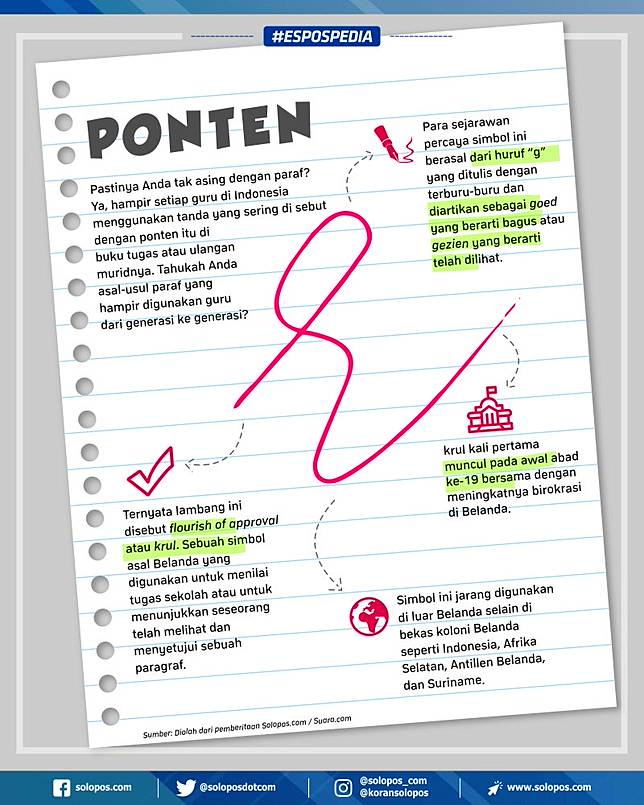 #ESPOSPEDIA
PONTEN
Pastinya Anda tak asing dengan paraf?
Ya, hampir setiap guru di Indonesia
menggunakan tanda yang sering di sebut
dengan ponten itu di
buku tugas atau ulangan
muridnya. Tahukah Anda
asal-usul paraf yang
hampir digunakan guru
dari generasi ke generasi?
Para sejarawan
percaya simbol ini
berasal dari huruf "g"
yang ditulis dengan
terburu-buru dan
diartikan sebagai goed
yang berarti bagus atau
gezien yang berarti
telah dilihat.
krul kali pertama
muncul pada awal abad
ke-19 bersama dengan
meningkatnya birokrasi
di Belanda.
Ternyata lambang ini
disebut flourish of approval
atau krul. Sebuah simbol
asal Belanda yang
digunakan untuk menilai
tugas sekolah atau untuk
menunjukkan seseorang
telah melihat dan
menyetujui sebuah
paragraf.
Simbol ini jarang digunakan
di luar Belanda selain di
bekas koloni Belanda
seperti Indonesia, Afrika
Selatan, Antillen Belanda,
dan Suriname.
Sumber: Diolah dari pemberitaan Solopos.com / Suara.com
solopos.com
@soloposdotcom
@solopos_com
@koransolopos
www.solopos.com